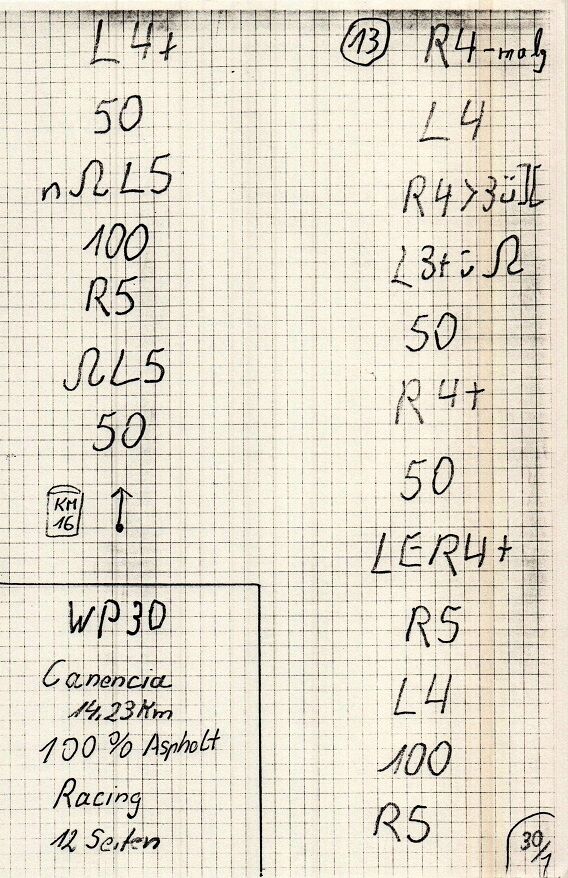 L4+
50
nΩL5
100
R5
ΩL5
50
KM
16
WP30
Canencia
14,23Km
100% Asphalt
Racing
12 Seiten
13
R4-malg
L4
R4>3ü][
L3+üΩ
50
R4+
50
LER4+
R5
L4
100
R5
30/1